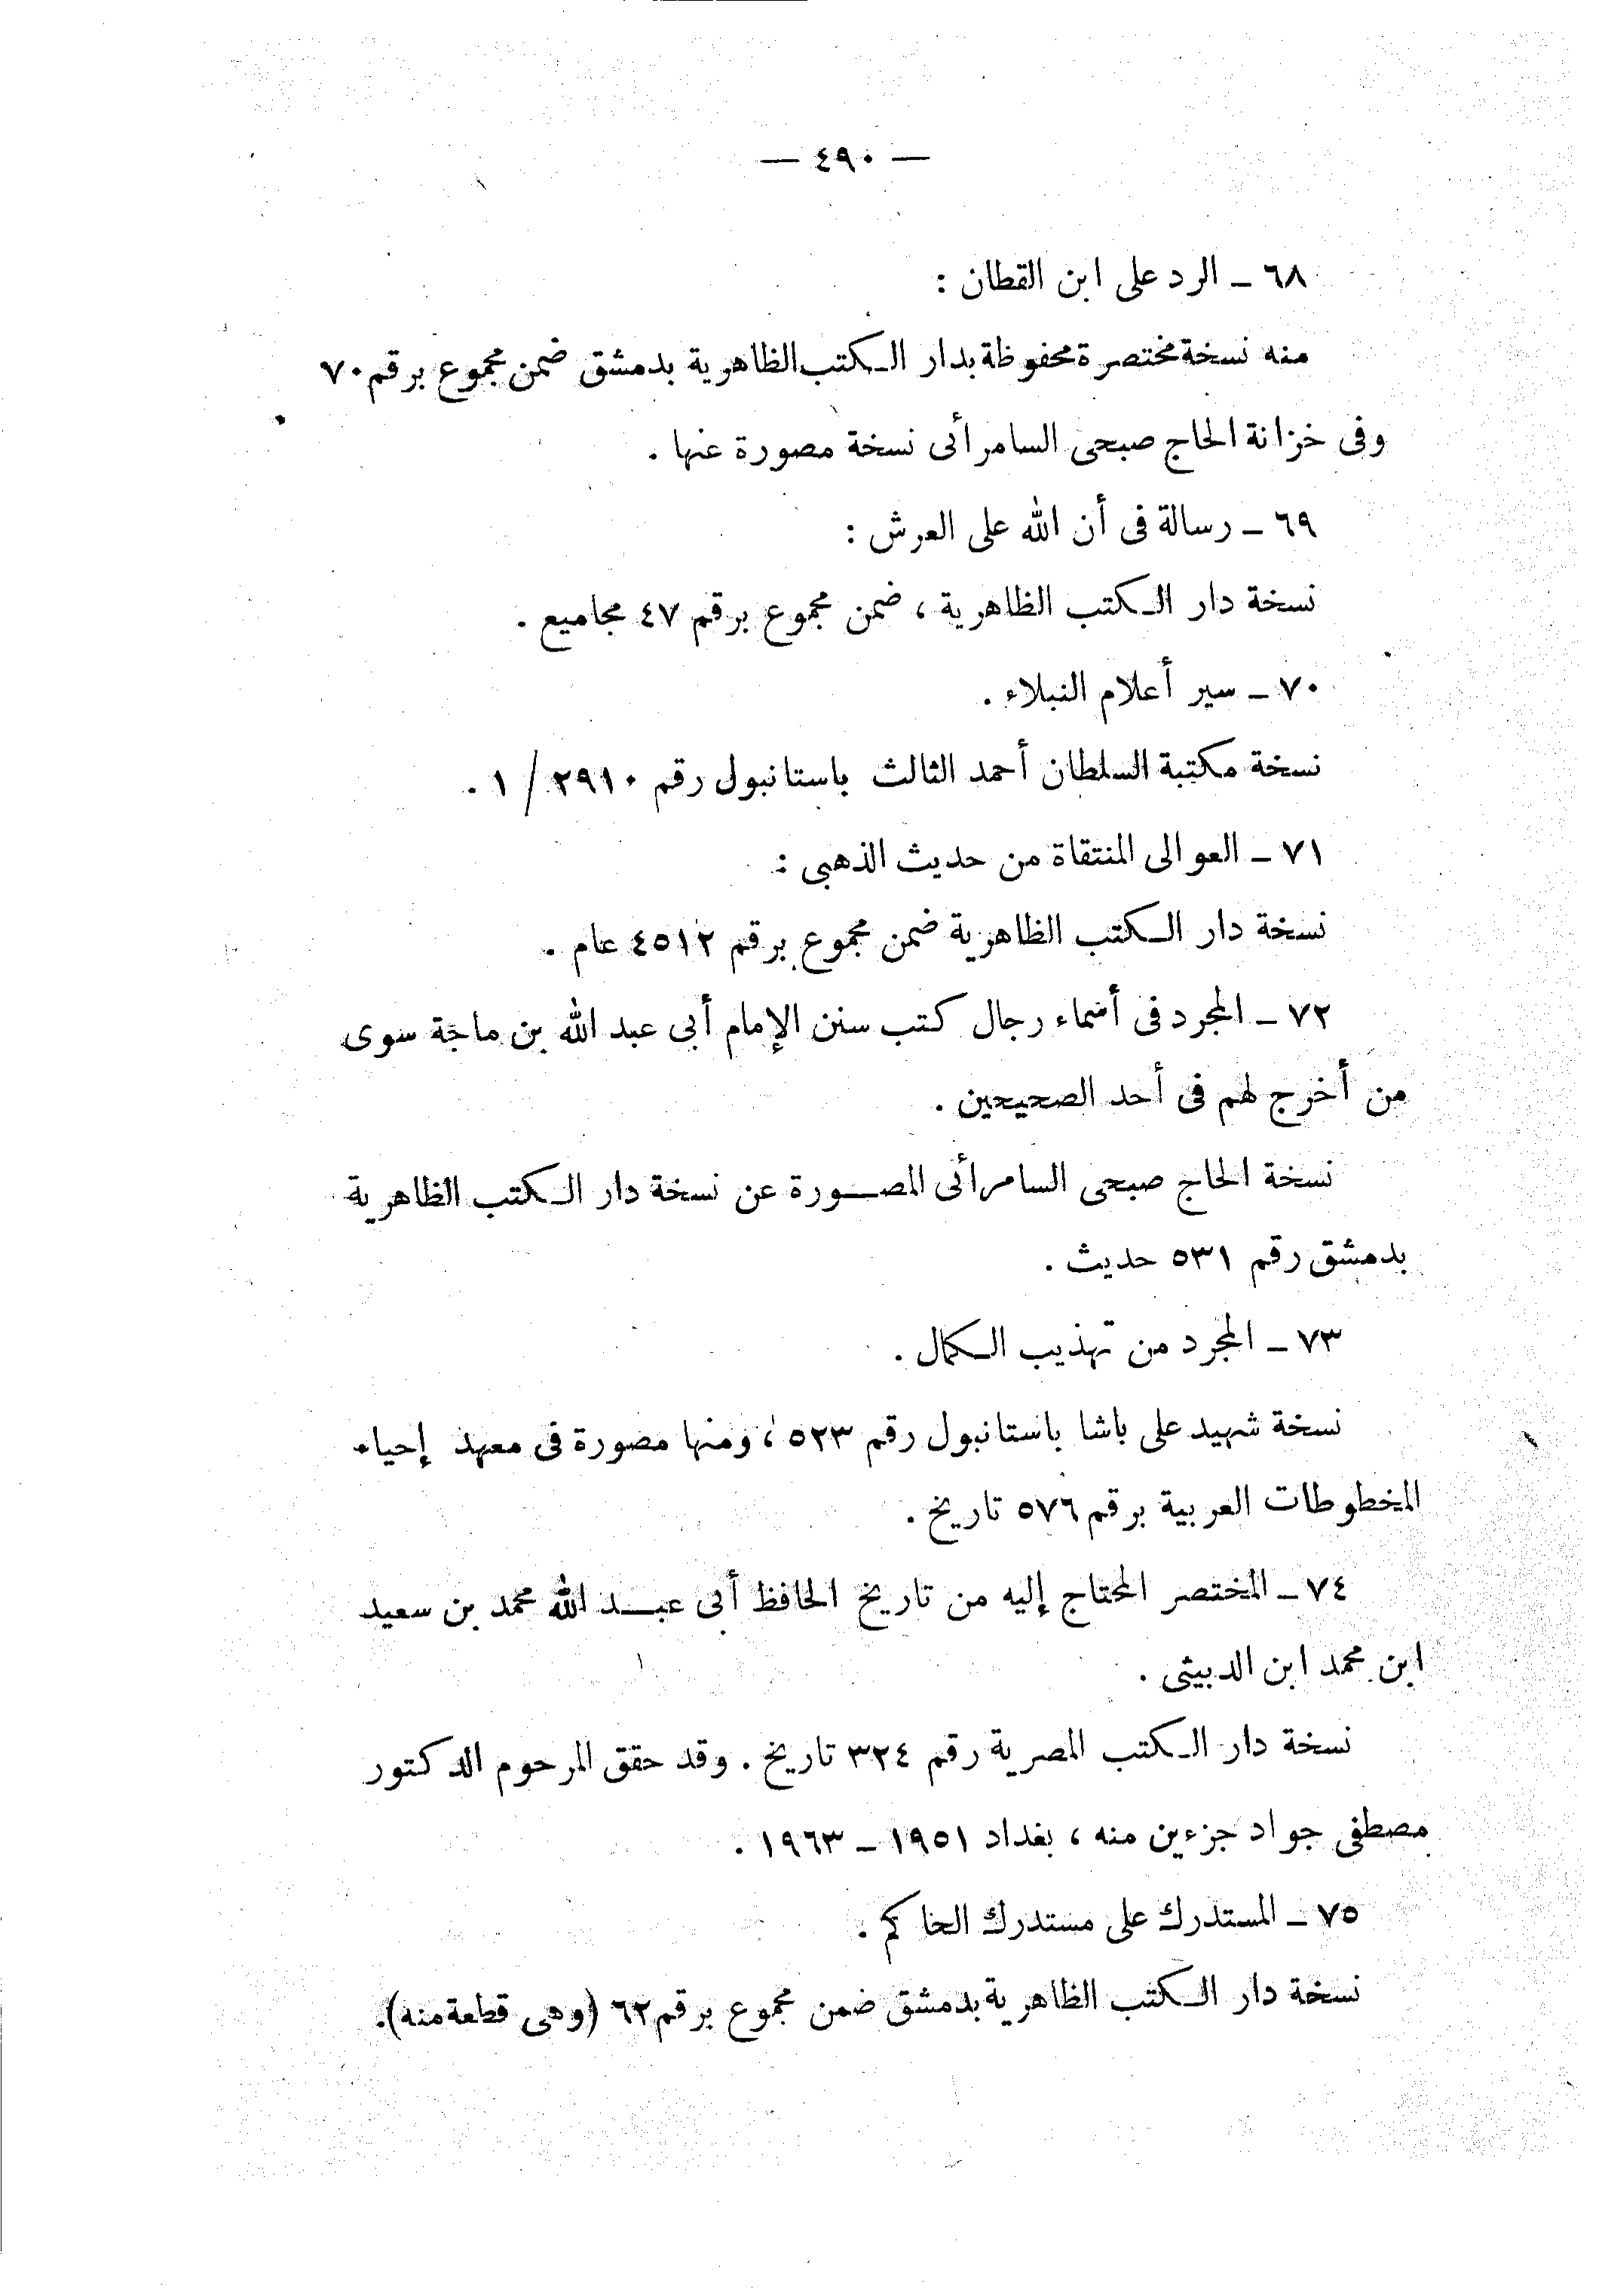 — ٤٩٠ —
٦٨ ـ الرد على ابن القطان :
منه نسخة مختصرة محفوظة بدار الكتب الظاهرية بدمشق ضمن مجموع برقم ٧٠
وفى خزانة الحاج صبحى السامرأئى نسخة مصورة عنها .
٦٩ ـ رسالة فى أن الله على العرش :
نسخة دار الكتب الظاهرية ، ضمن مجموع برقم ٤٧ مجاميع .
٧٠ ـ سير أعلام النبلاء .
نسخة مكتبة السلطان أحمد الثالث باستانبول رقم ٢٩١٠ / ١ .
٧١ ـ العوالى المنتقاة من حديث الذهبى :
نسخة دار الكتب الظاهرية ضمن مجموع برقم ٤٥١٢ عام .
٧٢ ـ المجرد فى أسماء رجال كتب سنن الإمام أبى عبد الله بن ماجة سوى
من أخرج لهم فى أحد الصحيحين .
نسخة الحاج صبحى السامرأئى المصورة عن نسخة دار الكتب الظاهرية
بدمشق رقم ٥٣١ حديث .
٧٣ ـ المجرد من تهذيب الكمال .
نسخة شهيد على باشا باستانبول رقم ٥٢٣ ، ومنها مصورة فى معهد إحياء
المخطوطات العربية برقم ٥٧٦ تاريخ .
٧٤ ـ المختصر المحتاج إليه من تاريخ الحافظ أبى عبد الله محمد بن سعيد
ابن محمد ابن الدبيثى .
نسخة دار الكتب المصرية رقم ٣٢٤ تاريخ . وقد حقق المرحوم الدكتور
مصطفى جواد جزءين منه ، بغداد ١٩٥١ ـ ١٩٦٣ .
٧٥ ـ المستدرك على مستدرك الحاكم .
نسخة دار الكتب الظاهرية بدمشق ضمن مجموع برقم ٦٢ (وهى قطعة منه).